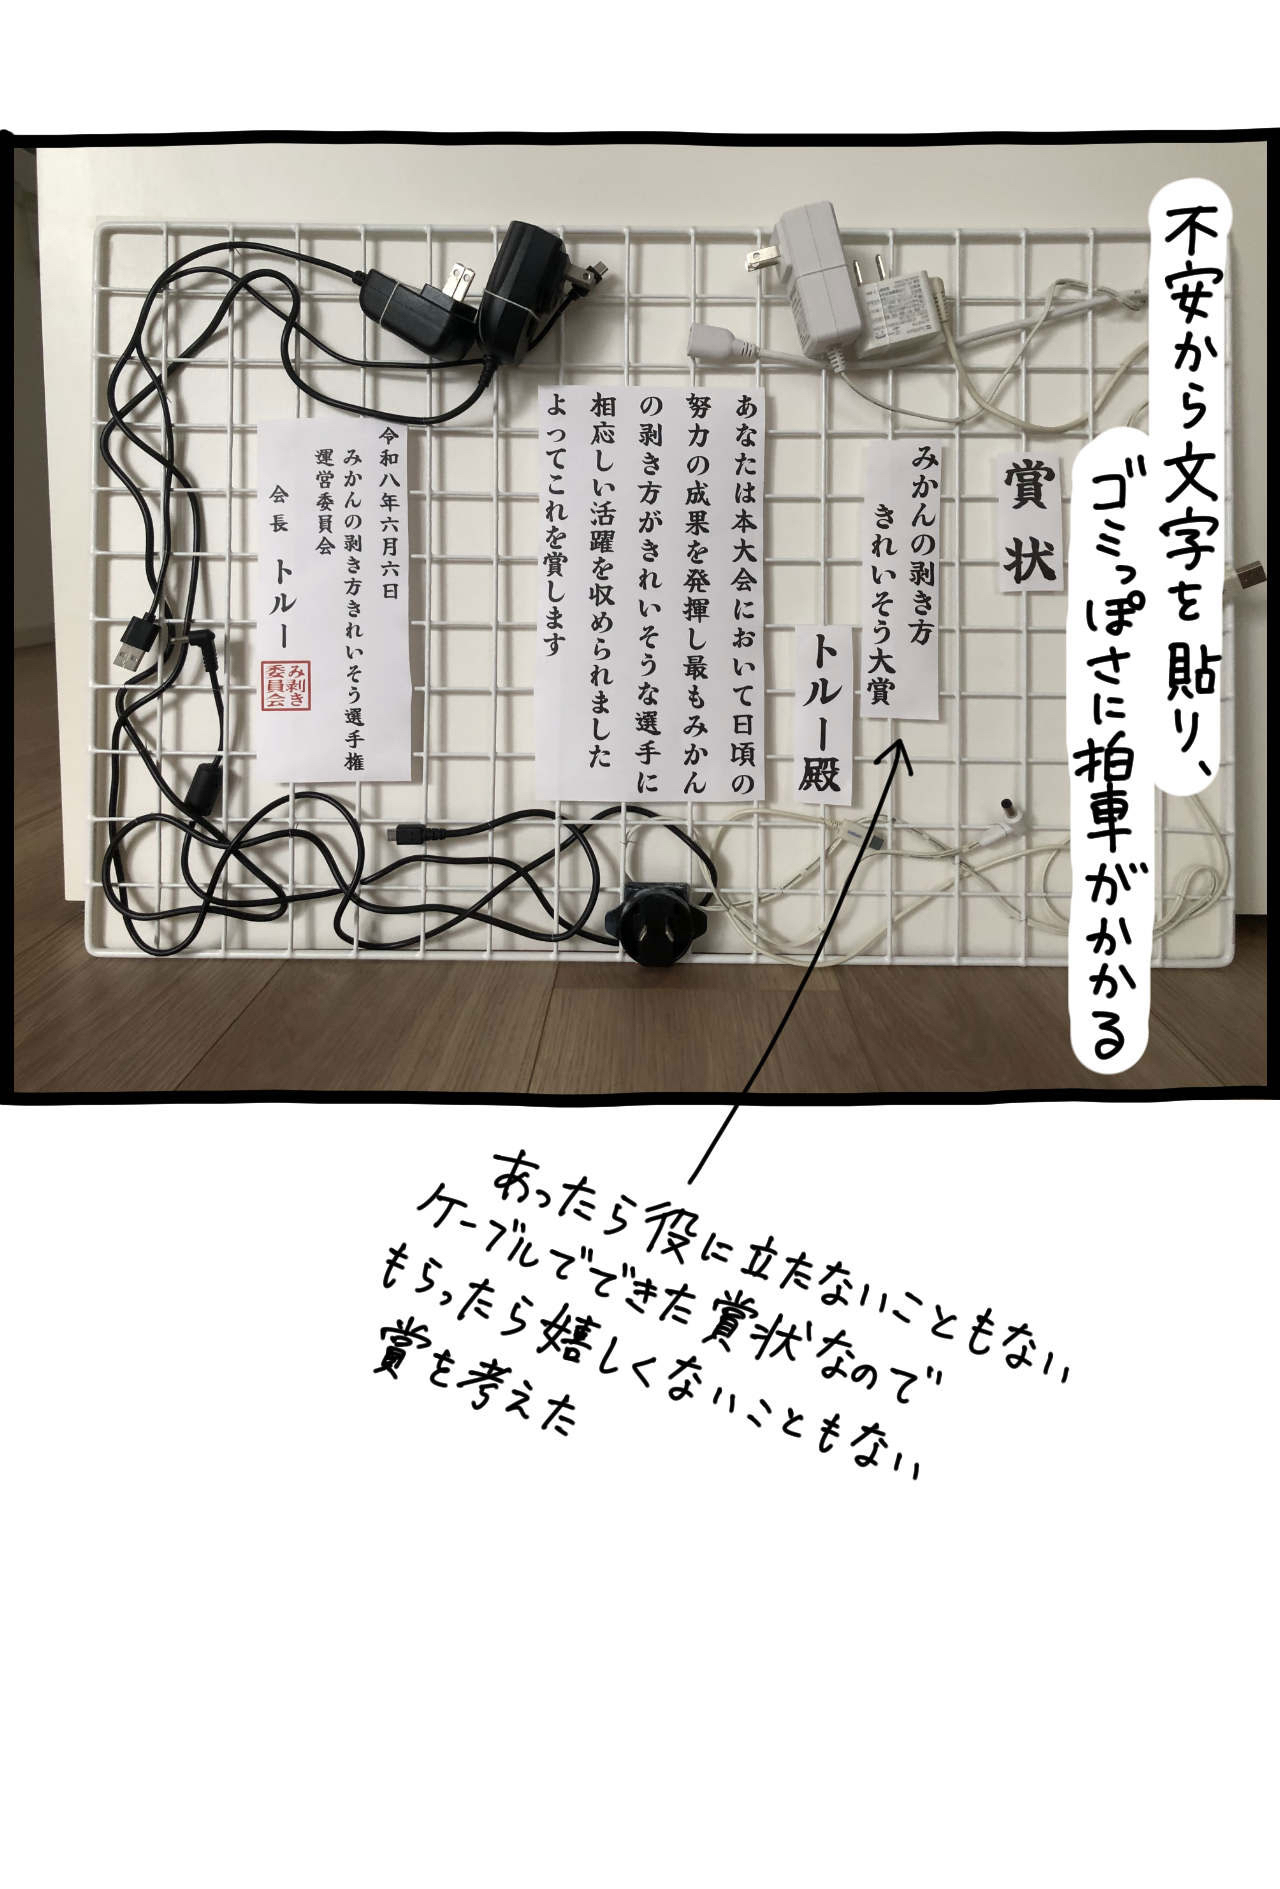 不安から文字を貼り、
ゴミっぽさに拍車がかかる
賞状
みかんの剥き方
きれいそう大賞
トルー殿
あなたは本大会において日頃の
努力の成果を発揮し最もみかん
の剥き方がきれいそうな選手に
相応しい活躍を収められました
よってこれを賞します
令和八年六月六日
みかんの剥き方きれいそう選手権
運営委員会
会長 トルー
み剥き
委員会
あったら役に立たないこともない
ケーブルでできた賞状なので
もらったら嬉しくないこともない
賞を考えた